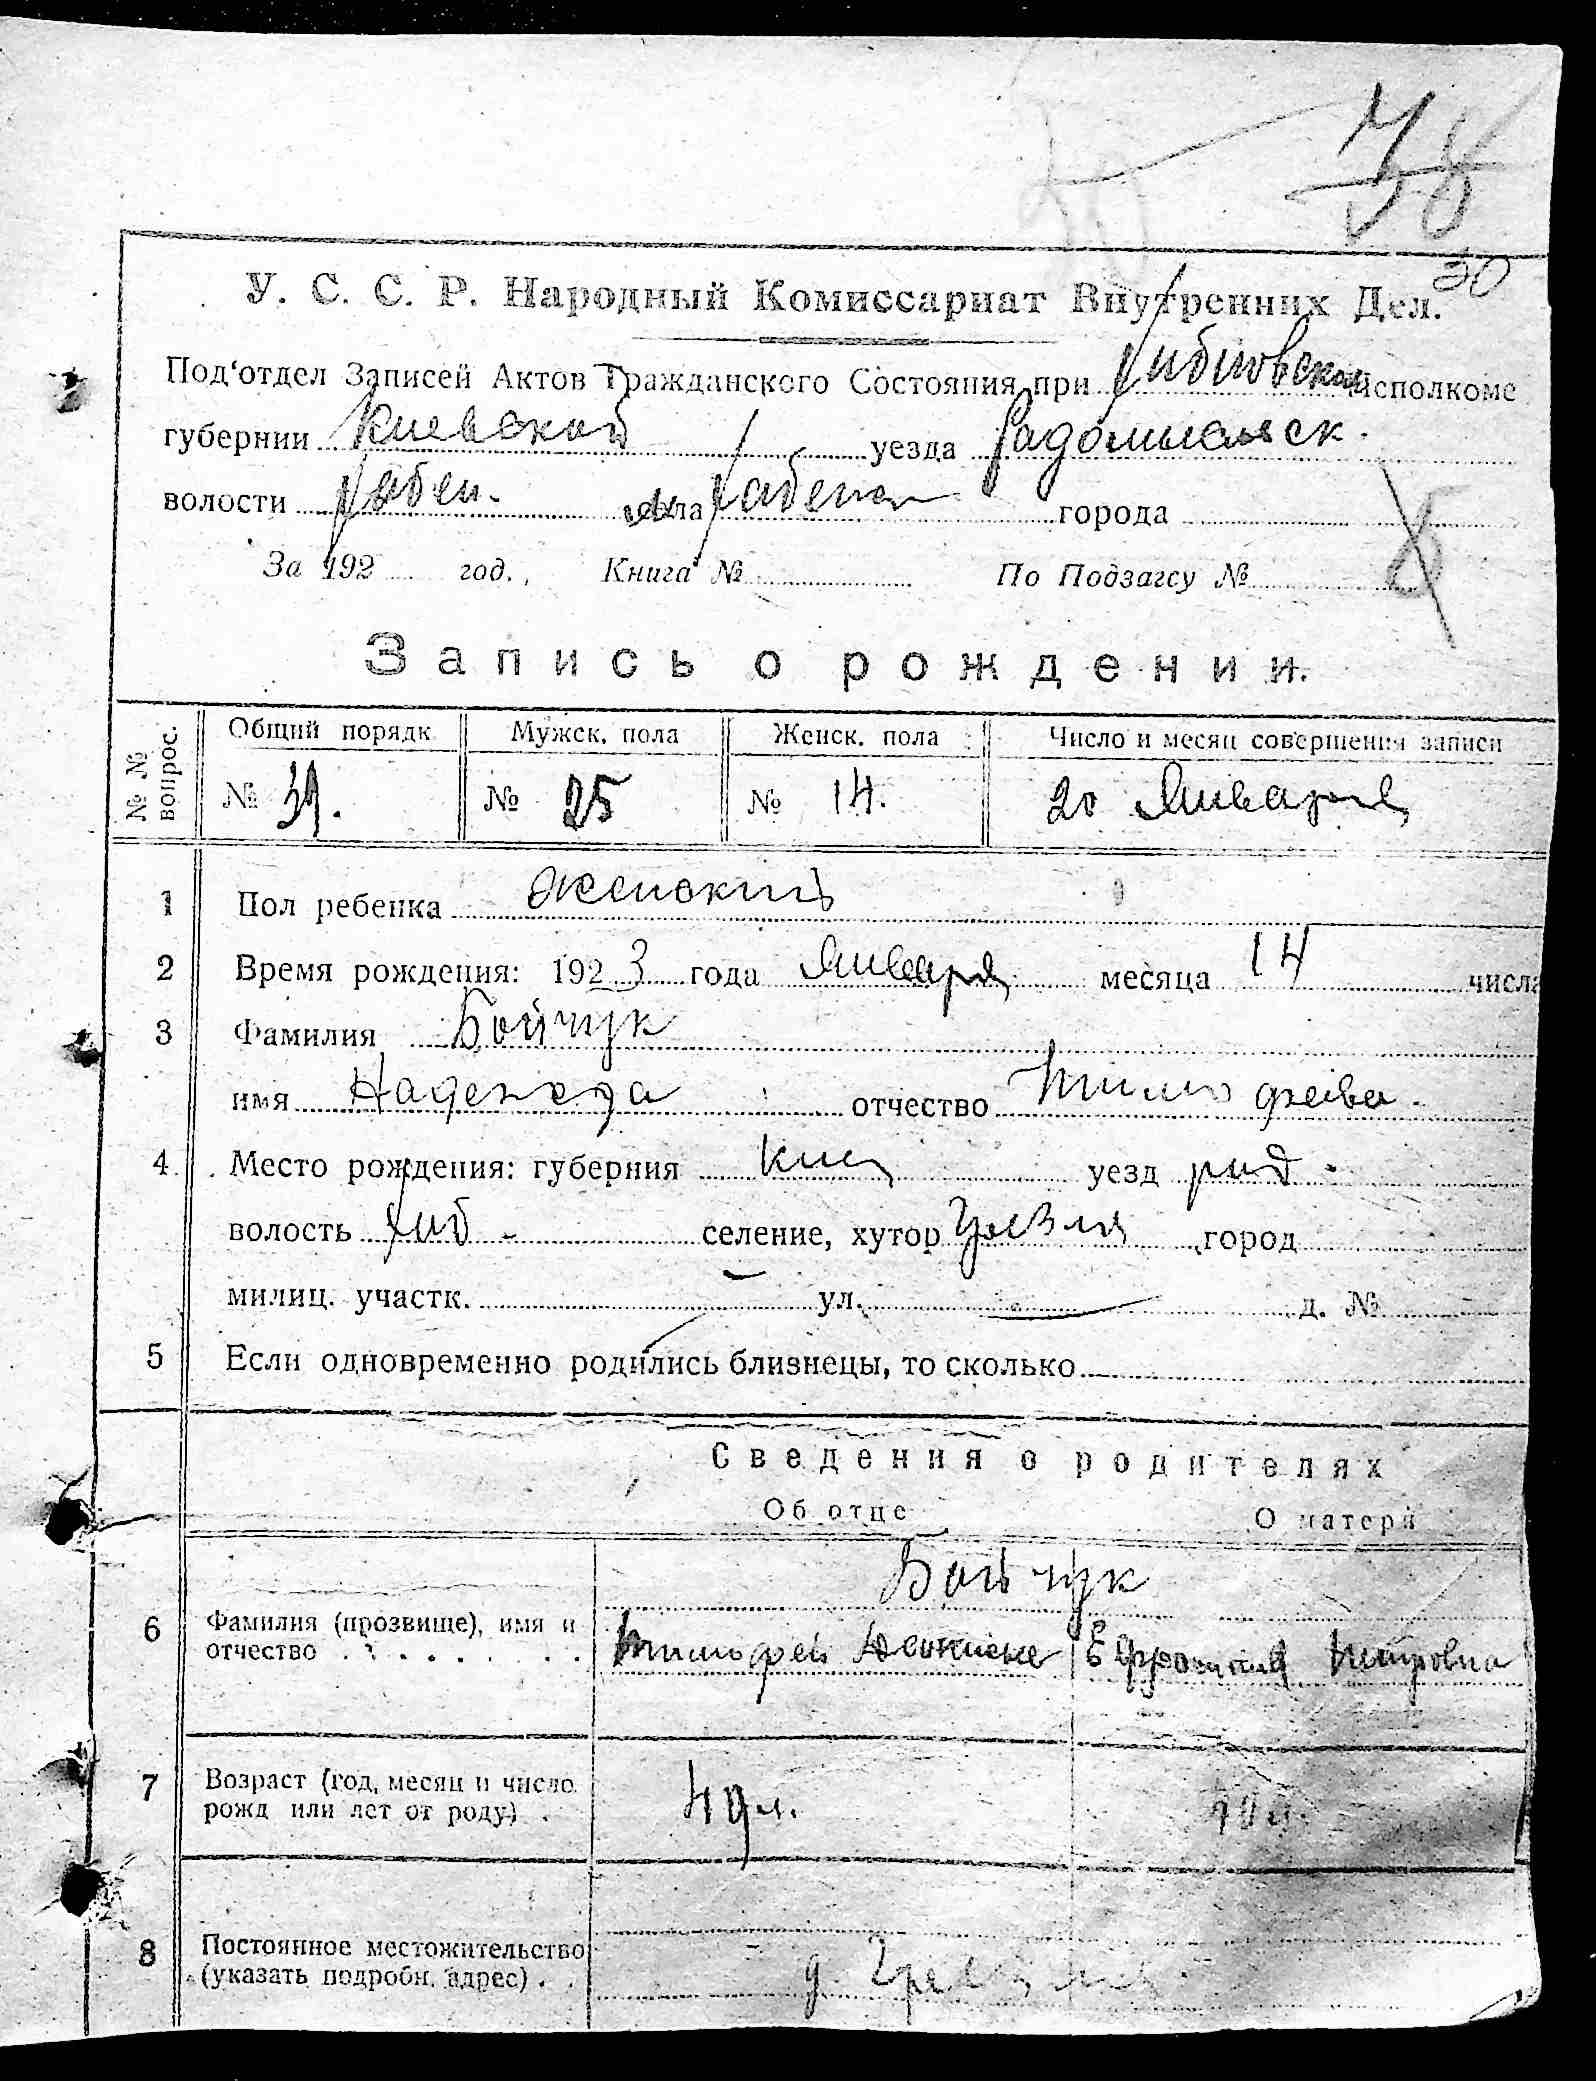 38
30
У. С. С. Р. Народный Комиссариат Внутренних Дел.
Под'отдел Записей Актов Гражданского Состояния при исполкоме
губернии Киевской уезда Радомысльск.
волости села города
За 192 год., Книга № По Подзагсу №
Запись о рождении.
№ № вопрос. Общий порядк. Мужск. пола Женск. пола Число и месяц совершения записи
№ 39. № 25 № 14. 20 Января
1 Пол ребенка женский
2 Время рождения: 1923 года Января месяца 14 числа
3 Фамилия Бойчук
имя Надежда отчество Тимофеева.
4 Место рождения: губерния Киев уезд рад.
волость селение, хутор город
милиц. участк. ул. д. №
5 Если одновременно родились близнецы, то сколько
Сведения о родителях
Об отце О матери
Бойчук
6 Фамилия (прозвище), имя и
отчество Тимофей Ефросиния Петровна
7 Возраст (год, месяц и число
рожд или лет от роду) . 49 л.
8 Постоянное местожительство
(указать подробн. адрес) . д.